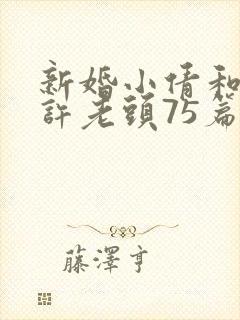 新婚小倩和
許老頭75篇
藤澤亨